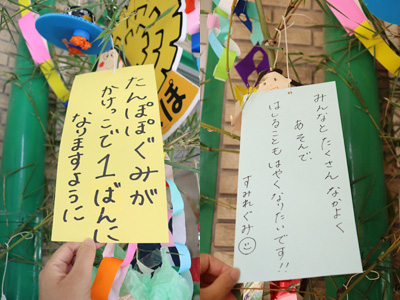 たんぽぽぐみが
かけっこで1ばんに
なりますように
ぽ
みんなとたくさんなかよく
あそんで、
はしることもはやくなりたいです!!
すみれぐみ